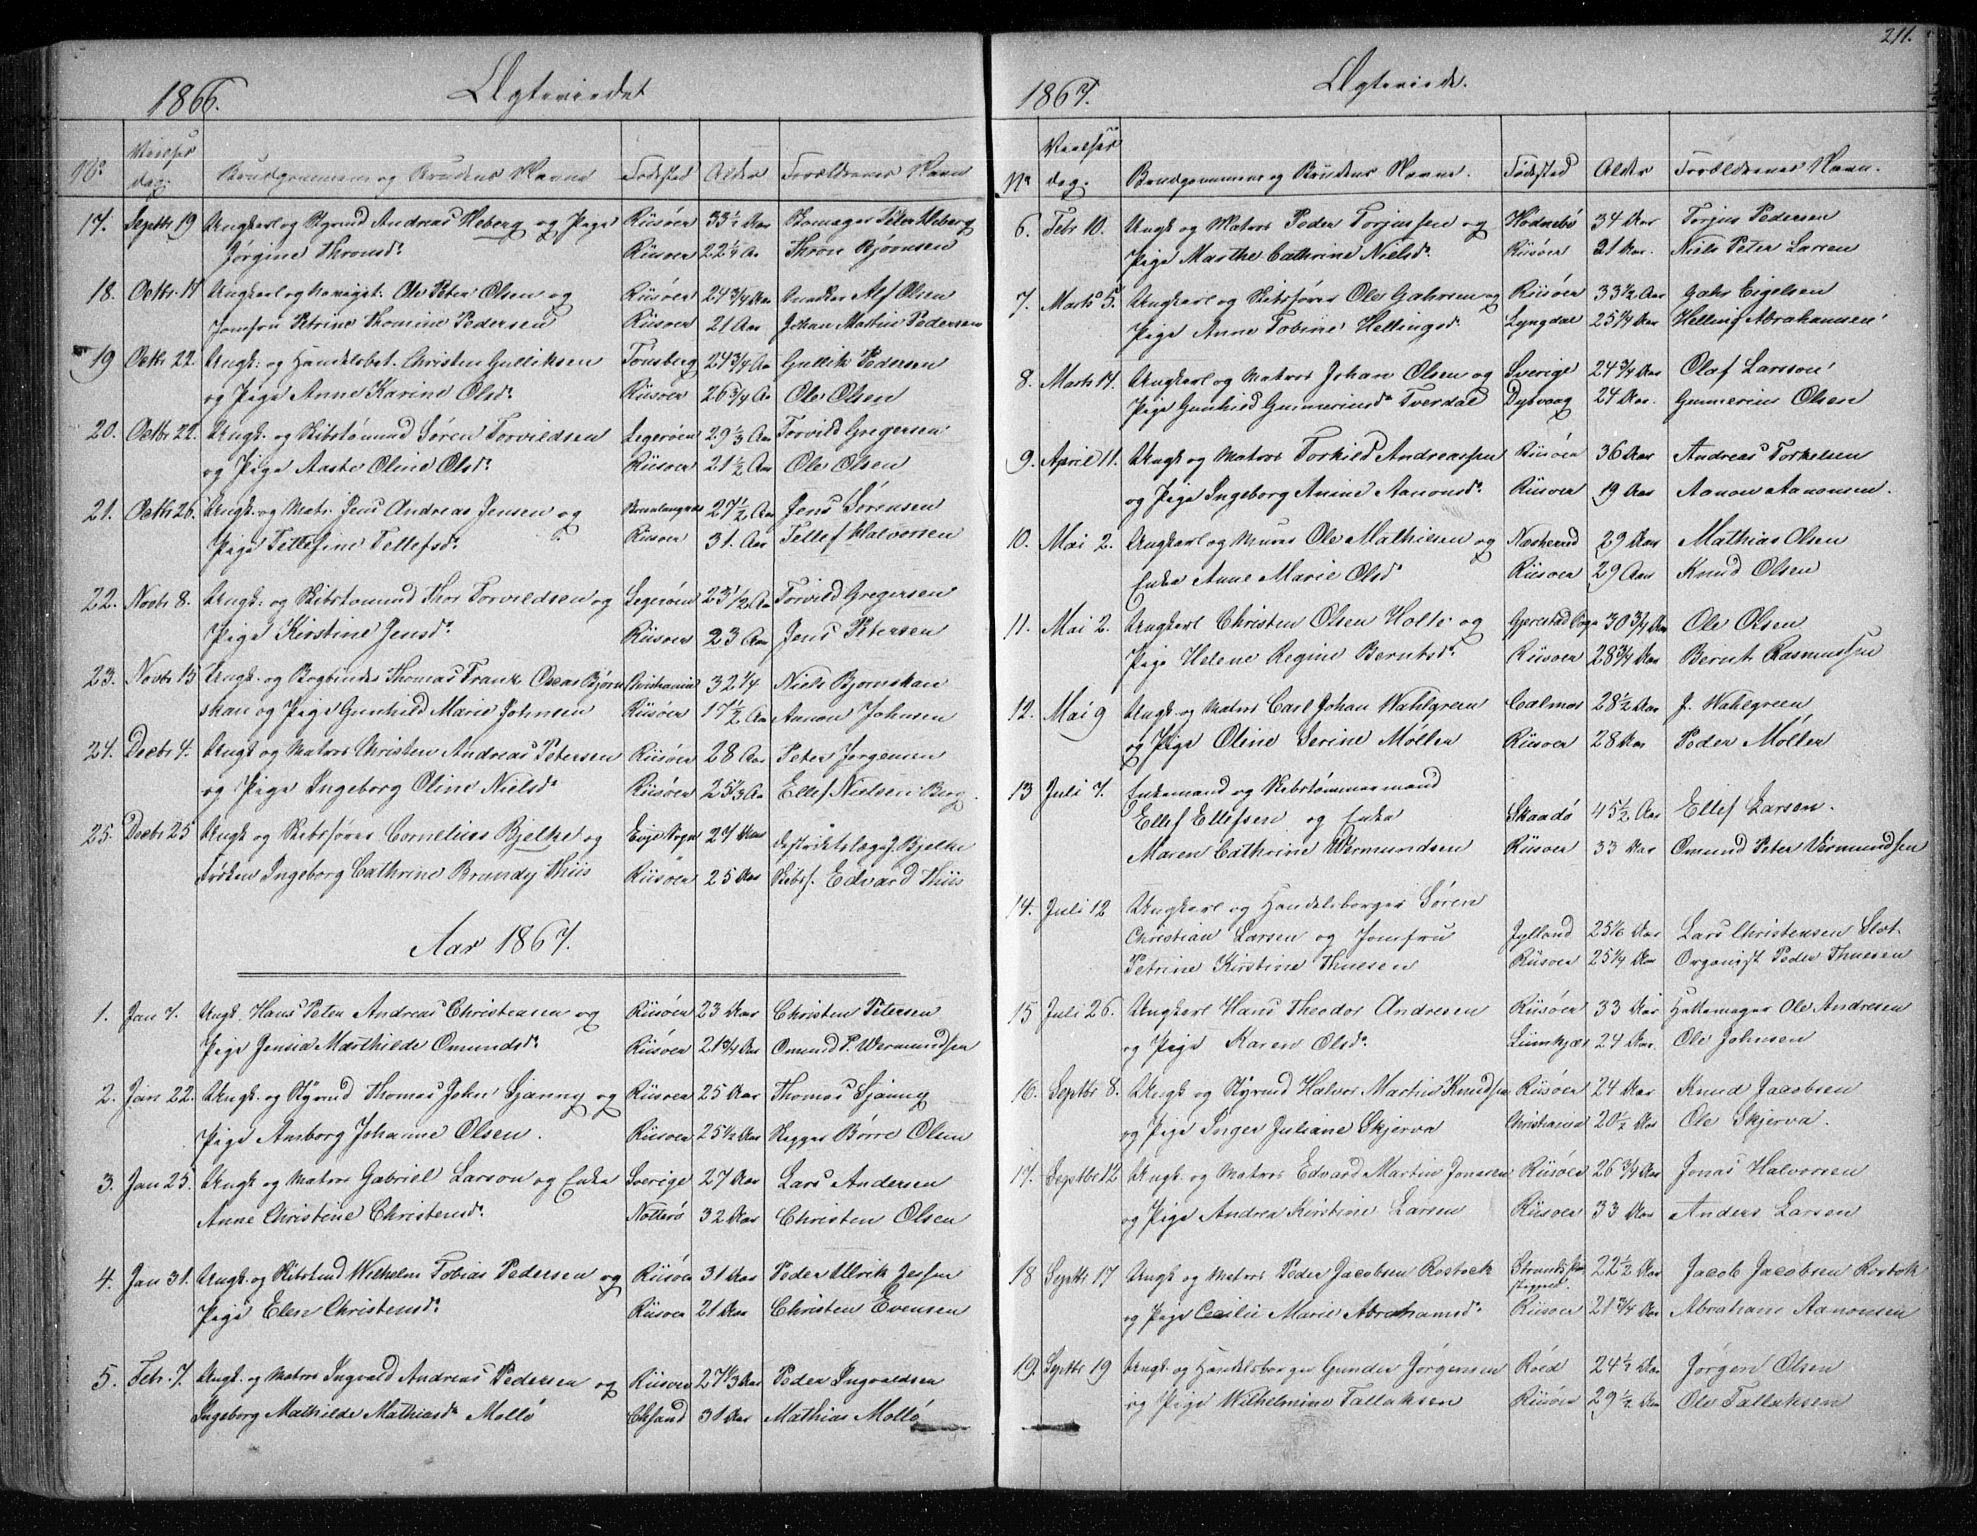 1866. Ægteviedet
No Vielses dag. Brudgommens og Brudens Navne Fødested Alder Forældrenes Navn
17. Septbr 19 Ungkarl og Styrmd Andreas Heberg og Pige Riisøer 33½ Aar Peter Heberg
Jørgine Thronsdr Riisøer 22¼ Aar Thron Bjørnsen
18. Octbr. 17 Ungkarl og Ole Peter Olsen og Riisøer 24¾ Aar Alf Olsen
Jomfru Petrine Thomine Pedersen Riisøer 21 Aar Johan Martin Pedersen
19 Octbr 22. Ungk. og Handelsbet. Christen Gulliksen Tønsberg 24¾ Aar Gullik Pedersen
og Pige Anne Karine Olsdr Riisøer 26¾ Aar Ole Olsen
20. Octbr. 22. Ungk. og Skibstømmd Søren Torvildsen Segerøen 29⅓ Aar Torvild Gregersen
og Pige Aaste Oline Olsdr Riisøer 21½ Aar Ole Olsen
21. Octbr 26. Ungk. og Matr. Jens Andreas Jensen og 27½ Aar Jens Sørensen
Pige Tellefine Tellefsdr Riisøer 31. Aar Tellef Halvorsen
22. Novbr 8. Ungk. og Skibstømmd Thor Torvildsen og Segerøen 23½ Aar Torvild Gregersen
Pige Kirstine Jensdr Riisøer 23 Aar Jens Petersen
23. Novbr 15 Ungk. og Bogbinder Thomas Frantz Oscar Bjørn Christiania 32¼ Niels Bjørnskau
skau og Pige Gunhild Marie Johnsen Riisøer 17½ Aar Aanon Johnsen
24. Decbr 4. Ungk og Matros Christen Andreas Petersen Riisøer 28 Aar Peter Jørgensen
og Pige Ingeborg Oline Nielsdr Riisøer 25⅓ Aar Ellef Nielsen Berg.
25. Decbr 25 Ungk og Skibsfører Cornelius Bjelke og Sogn 27 Aar Distriktslæge J. Bjelke
Frøken Ingeborg Cathrine Brandy Thiis Riisøer 25 Aar Skibsf. Edvard Thiis
Aar 1867.
1. Jan 7. Ungk. Hans Peter Andreas Christensen og Riisøer 23 Aar Christen Petersen
Pige Jensia Mathilde Omundsdr Riisøer 21¾ Aar Omund P. Wermundsen
2. Jan 22. Ungk. og Styrmd Thomas John Sjanny og Riisøer 25 Aar Thomas Sjanny
Pige Amborg Johanne Olsen. Riisøer 25½ Aar Børre Olsen
3. Jan 25. Ungk og Matros Gabriel Larson og Enke Sverige 27 Aar Lars Andersen
Anne Christine Christensdr Nøtterø 32 Aar Christen Olsen
4. Jan 31. Ungk. og Skibstmd Wilhelm Tobias Pedersen og Riisøer 31 Aar Peder Ulrik Jessen
Pige Elen Christensdr Riisøer 21 Aar Christen Evensen
5. Febr. 7. Ungk. og Matros Ingvald Andreas Pedersen og Riisøer 27⅓ Aar Peder Ingvaldsen
Ingeborg Mathilde Mathiasdr Mollø 31 Aar Mathias Mollø
211.
1867. Ægteviede.
No Vielses dag. Brudgommens og Brudens Navne. Fødested Alder Forældrenes Navn.
6. Febr 10. Ungk og Matros Peder Torjussen og Hødnebø 34 Aar Torjus Pedersen
Pige Marthe Cathrine Nielsdr Riisøer 21 Aar. Niels Peter Larsen
7. Marts 5. Ungkarl og Skibsfører Ole Gahrsen og Riisøer 33½ Aar Gahr Eigelsen
Pige Anne Tobine Hellingsdr Lyngdal 25¼ Aar Helling Abrahamsen
8. Marts 14. Ungkarl og Matros Johan Olsen og Sverige 24¾ Aar Olaf Larsson
Pige Gunhild Gunneriusdr Tverdal Dybvaag 24 Aar. Gunnerius Olsen
9. April 11. Ungk og Matros Torkild Andreassen Riisøer 36 Aar Andreas Torkelsen
og Pige Ingeborg Anine Aanonsdr Riisøer 19 Aar Aanon Aanonsen.
10. Mai 2. Ungkarl og Murer Ole Mathisen og 29 Aar Mathias Olsen
Enke Anne Marie Olsdr Riisøer 29 Aar Knud Olsen
11. Mai 2. Ungkarl Christen Olsen Holte og Gjerestad Sogn 30¾ Aar Ole Olsen
Pige Helene Regine Berntsdr Riisøer 28¾ Aar Bernt Rasmussen
12. Mai 9 Ungk. og Matros Carl Johan Wahlgreen Calmar 28½ Aar J. Wahlgreen
og Pige Oline Serine Møller Riisøer 28 Aar Peder Møller
13 Juli 7. Enkemand og Skibstømmermand
Ellef Ellefsen og Enke Skaadø 45½ Aar Ellef Larsen.
Maren Cathrine Wermundsen Riisøer 33 Aar Omund Peter Vermundsen
14. Juli 12 Ungkarl og Handelsborger Søren
Christian Larsen og Jomfru Jylland 25⅙ Aar Lars Christensen Slot.
Petrine Kirstine Thuesen Riisøer 25¼ Aar Organist Peder Thuesen
15 Juli 26. Ungkarl Hans Theodor Andresen Riisøer 33 Aar Hattemager Ole Andresen
og Pige Karen Olsdr 24 Aar. Ole Johnsen
16. Septbr 8. Ungk og Styrmd Halvor Martin Knudsen Riisøer 24 Aar Knud Jacobsen
og Pige Inger Juliane Skjerva Christiania 20½ Aar Ole Skjerva.
17. Septbr 12 Ungk. og Matros Edvard Martin Jonassen Riisøer 26¾ Aar Jonas Halvorsen
og Pige Andrea Kirstine Larsen Riisøer 33 Aar Anders Larsen
18 Septbr 17 Ungk og Matros Peder Jacobsen Rostock 22½ Aar Jacob Jacobsen Rostok
og Pige Cecilie Marie Abrahamsdr Riisøer 21¾ Aar Abraham Aanonsen
19. Septbr 19 Ungk og Handelsborger Gunder Jørgensen Røed 24½ Aar Jørgen Olsen
og Pige Wilhelmine Tallaksen Riisøer 29½ Aar Ole Tallaksen